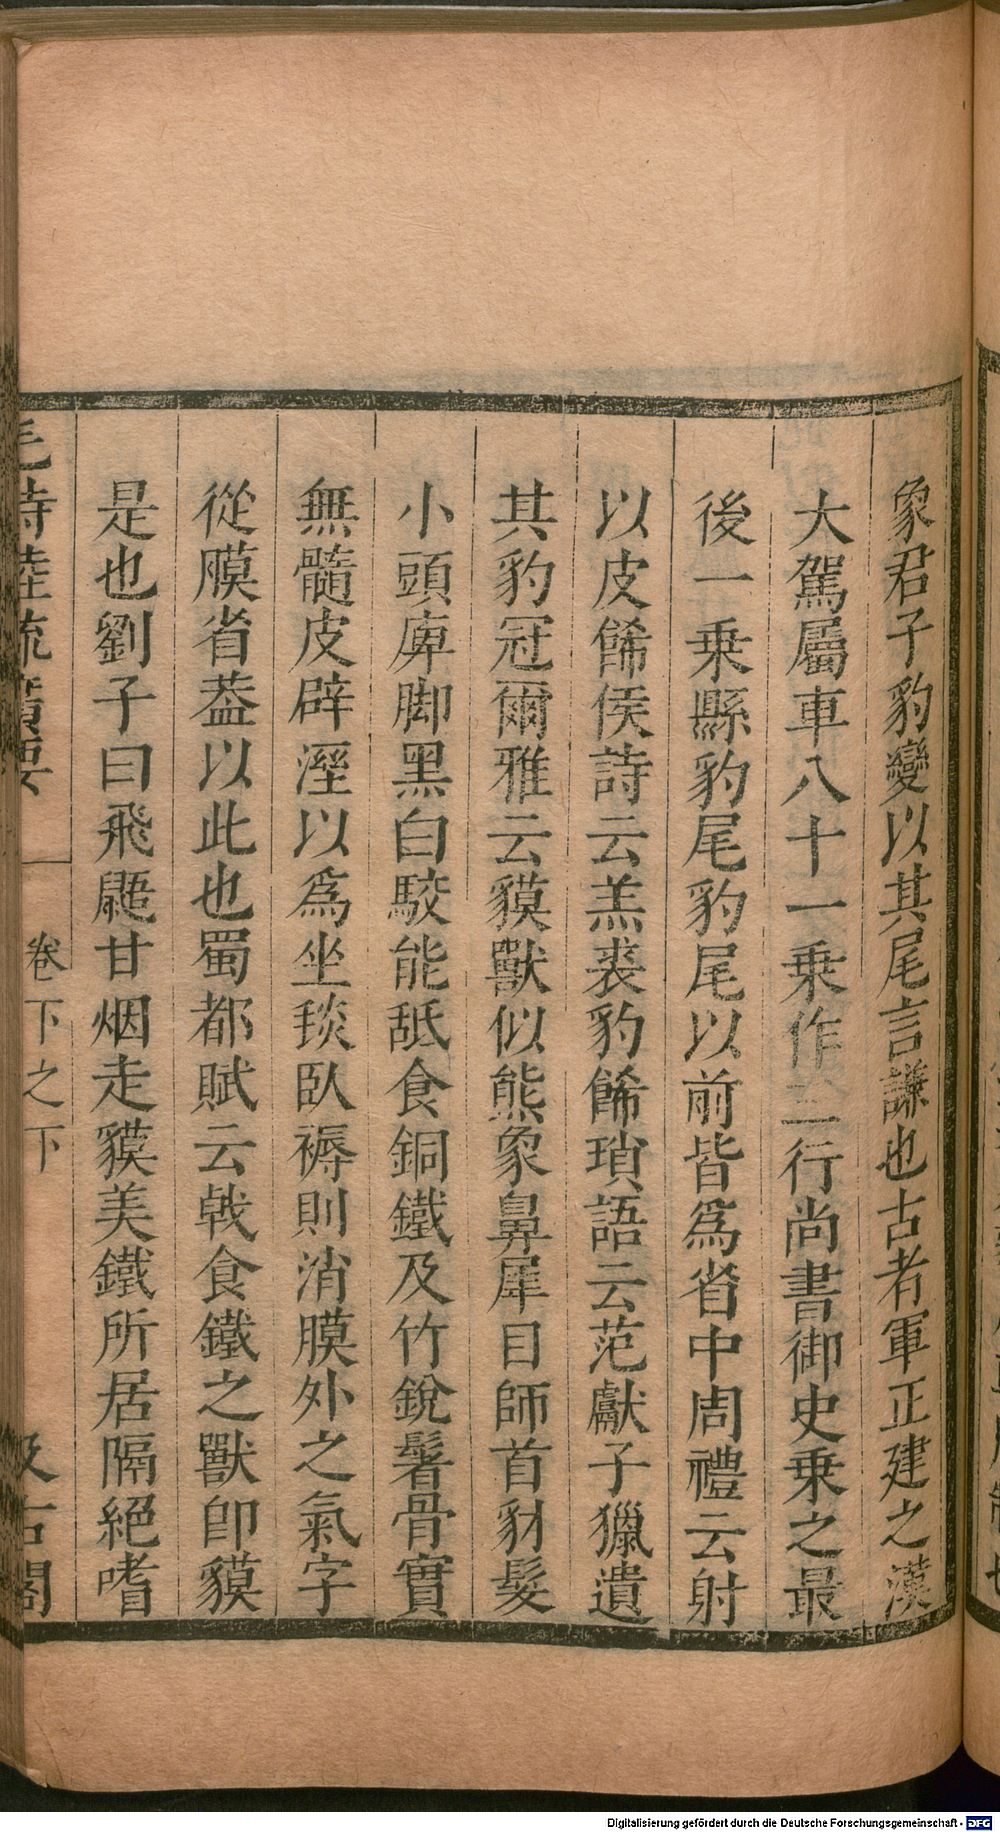 象君子豹變以其尾言謙也古者軍正建之漢
大駕屬車八十一乗作二行尚書御史乗之最
後一乗縣豹尾豹尾以前皆爲省中周禮云射
以皮餙侯詩云羔裘豹餙瑣語云范獻子獵遺
其豹冠爾雅云貘獸似熊象鼻犀目師首豺髮
小頭庳脚黑白駮能舐食銅鐵及竹銳鬐骨實
無髓皮辟溼以爲坐毯臥褥則消膜外之氣字
從膜省葢以此也蜀都賦云戟食鐵之獸卽貘
是也劉子曰飛鼯甘烟走貘美鐵所居隔絕嗜
毛詩陸疏廣要
卷下之下
汲古閣
Digitalisierung gefördert durch die Deutsche Forschungsgemeinschaft - DFG